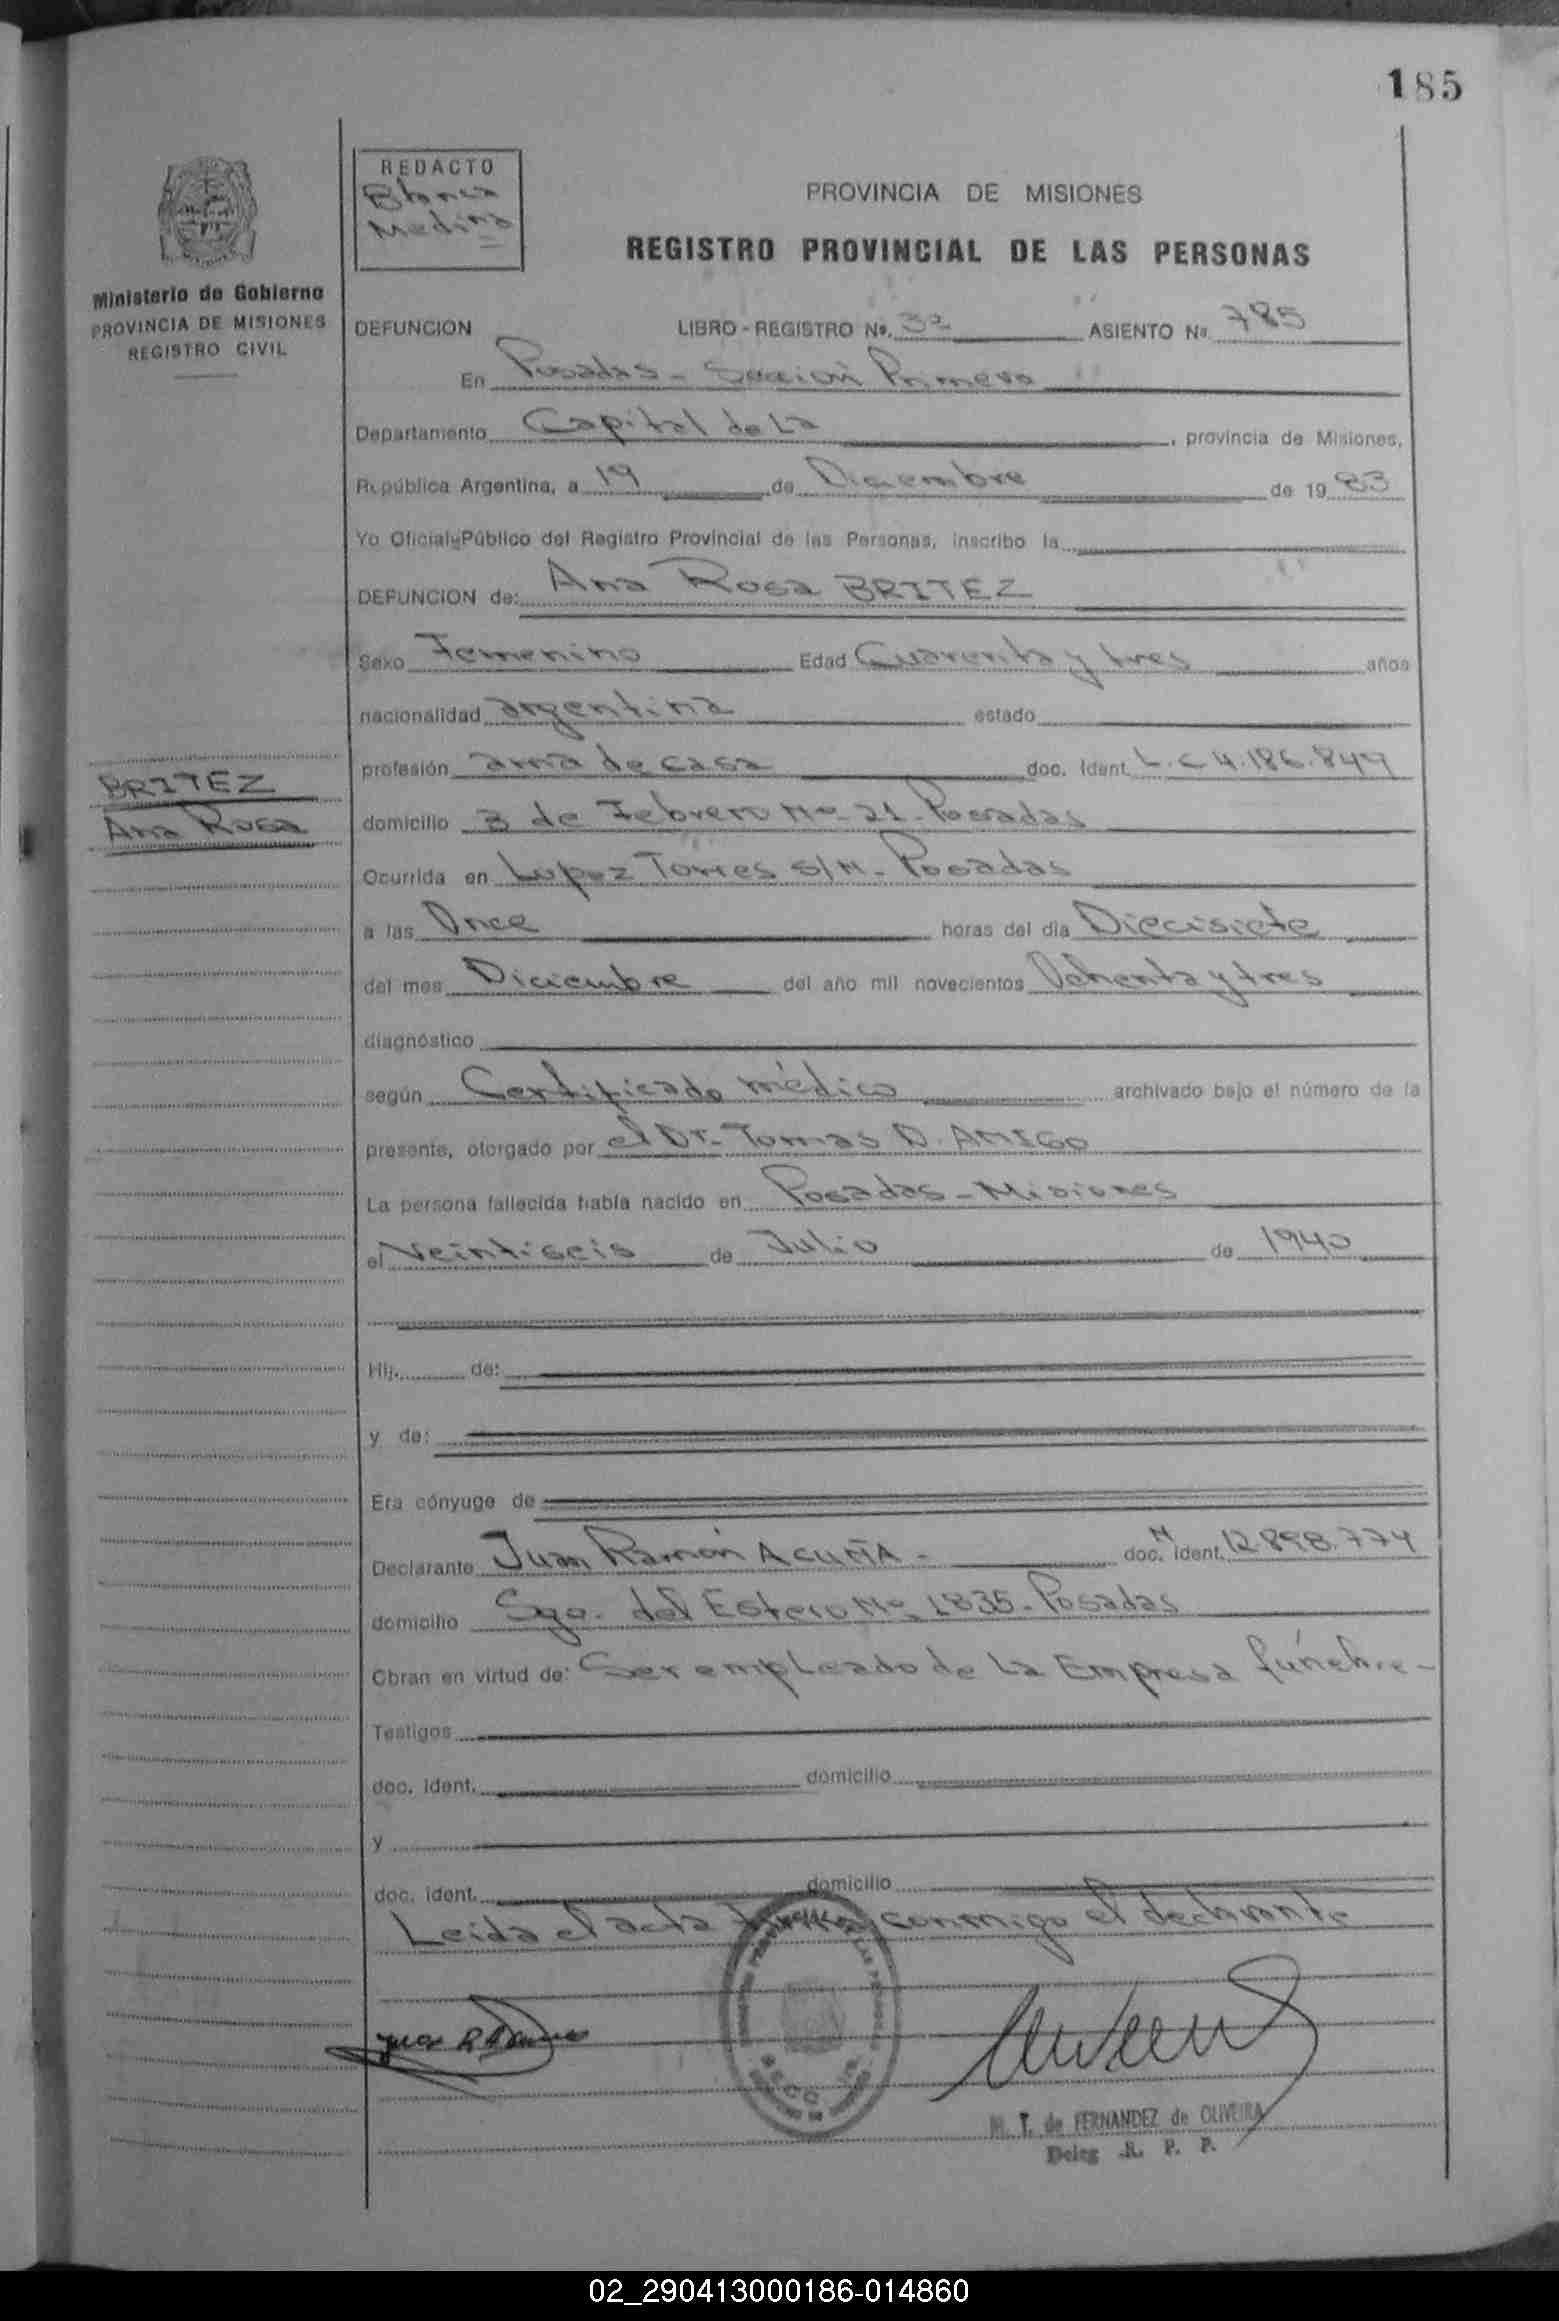 185
REDACTO
Blanca
Medina
PROVINCIA DE MISIONES
REGISTRO PROVINCIAL DE LAS PERSONAS
Ministerio de Gobierno
PROVINCIA DE MISIONES
REGISTRO CIVIL
DEFUNCION LIBRO-REGISTRO No. 3º ASIENTO No. 785
En Posadas - Sección Primera
Departamento Capital de La, provincia de Misiones,
República Argentina, a 19 de Diciembre de 19 83
Yo Oficial Público del Registro Provincial de las Personas, inscribo la
DEFUNCION de: Ana Rosa BRITEZ
Sexo Femenino Edad Cuarenta y tres años
nacionalidad argentina estado
profesión ama de casa doc. Ident. L.C 4.186.849
BRITEZ
Ana Rosa
domicilio 3 de Febrero No 21 - Posadas
Ocurrida en Lopez Torres S/N - Posadas
a las Once horas del día Diecisiete
del mes Diciembre del año mil novecientos Ochenta y tres
diagnóstico
según Certificado médico archivado bajo el número de la
presente, otorgado por el Dr. Tomas D. AMIGO
La persona fallecida había nacido en Posadas - Misiones
el Veintiseis de Julio de 1940
Hij de:
y de:
Era cónyuge de
Declarante Juan Ramón ACUÑA - doc. Ident. M 12.898.774
domicilio Sgo. del Estero No 1835 - Posadas
Obran en virtud de: Ser empleado de La Empresa fúnebre -
Testigos
doc. Ident. domicilio
y
doc. ident. domicilio
Leida el acta conmigo el declarante
M. T. de FERNANDEZ de OLIVEIRA
Deleg. R. P. P.
02_290413000186-014860